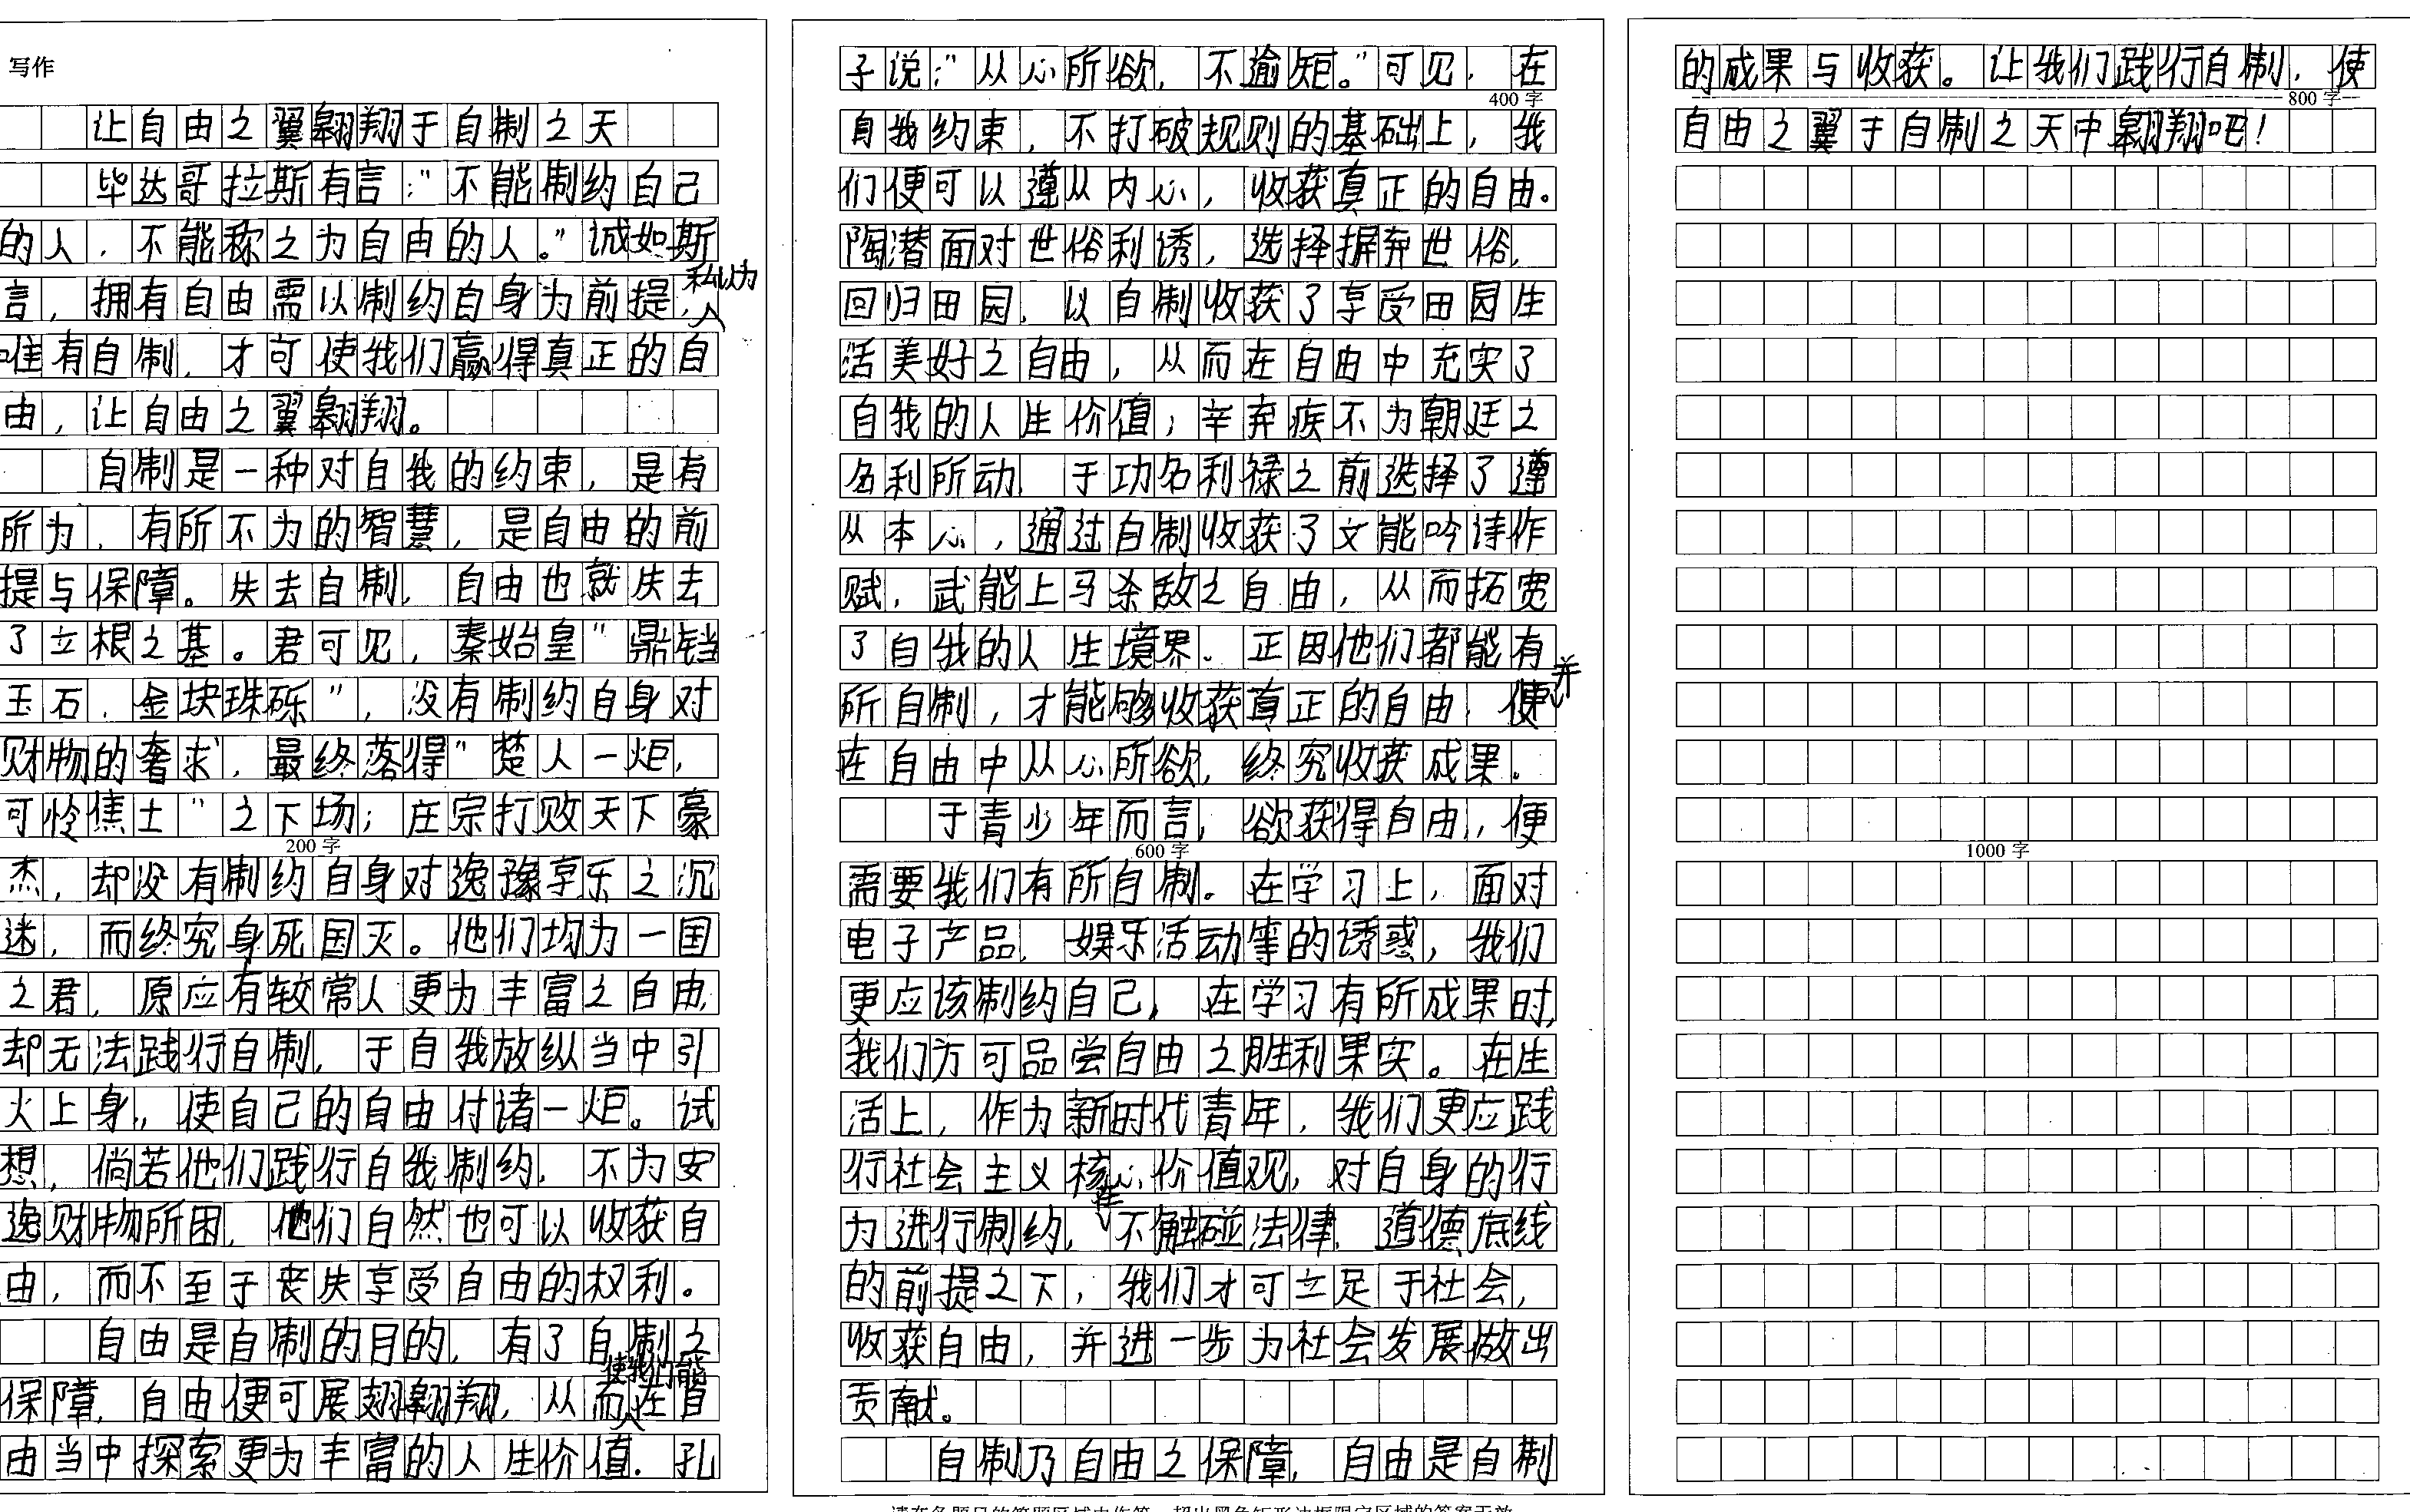 写作
让自由之翼翱翔于自制之天
毕达哥拉斯有言:"不能制约自己
的人，不能称之为自由的人。"诚如斯
言，拥有自由需以制约自身为前提，私以为
唯有自制，才可使我们赢得真正的自
由，让自由之翼翱翔。
自制是一种对自我的约束，是有
所为，有所不为的智慧，是自由的前
提与保障。失去自制，自由也就失去
了立根之基。君可见，秦始皇"鼎铛
玉石，金块珠砾"，没有制约自身对
财物的奢求，最终落得"楚人一炬，
可怜焦土"之下场；庄宗打败天下豪
200字
杰，却没有制约自身对逸豫享乐之沉
迷，而终究身死国灭。他们均为一国
之君，原应有较常人更为丰富之自由，
却无法践行自制，于自我放纵当中引
火上身，使自己的自由付诸一炬。试
想，倘若他们践行自我制约，不为安
逸财物所困，他们自然也可以收获自
由，而不至于丧失享受自由的权利。
自由是自制的目的，有了自制之
保障，自由便可展翅翱翔，从而使我们能在自
由当中探索更为丰富的人生价值。孔
子说："从心所欲，不逾矩。"可见，在
400字
自我约束，不打破规则的基础上，我
们便可以遵从内心，收获真正的自由。
陶潜面对世俗利诱，选择摒弃世俗，
回归田园，以自制收获了享受田园生
活美好之自由，从而在自由中充实了
自我的人生价值；辛弃疾不为朝廷之
名利所动，于功名利禄之前选择了遵
从本心，通过自制收获了文能吟诗作
赋，武能上马杀敌之自由，从而拓宽
了自我的人生境界。正因他们都能有
所自制，才能够收获真正的自由，使并
在自由中从心所欲，终究收获成果。
于青少年而言，欲获得自由，便
600字
需要我们有所自制。在学习上，面对
电子产品，娱乐活动等的诱惑，我们
更应该制约自己，在学习有所成果时，
我们方可品尝自由之胜利果实。在生
活上，作为新时代青年，我们更应践
行社会主义核心价值观，对自身的行
为进行制约，在不触碰法律、道德底线
的前提之下，我们才可立足于社会，
收获自由，并进一步为社会发展做出
贡献。
自制乃自由之保障，自由是自制
的成果与收获。让我们践行自制，使
800字
自由之翼于自制之天中翱翔吧！
1000字